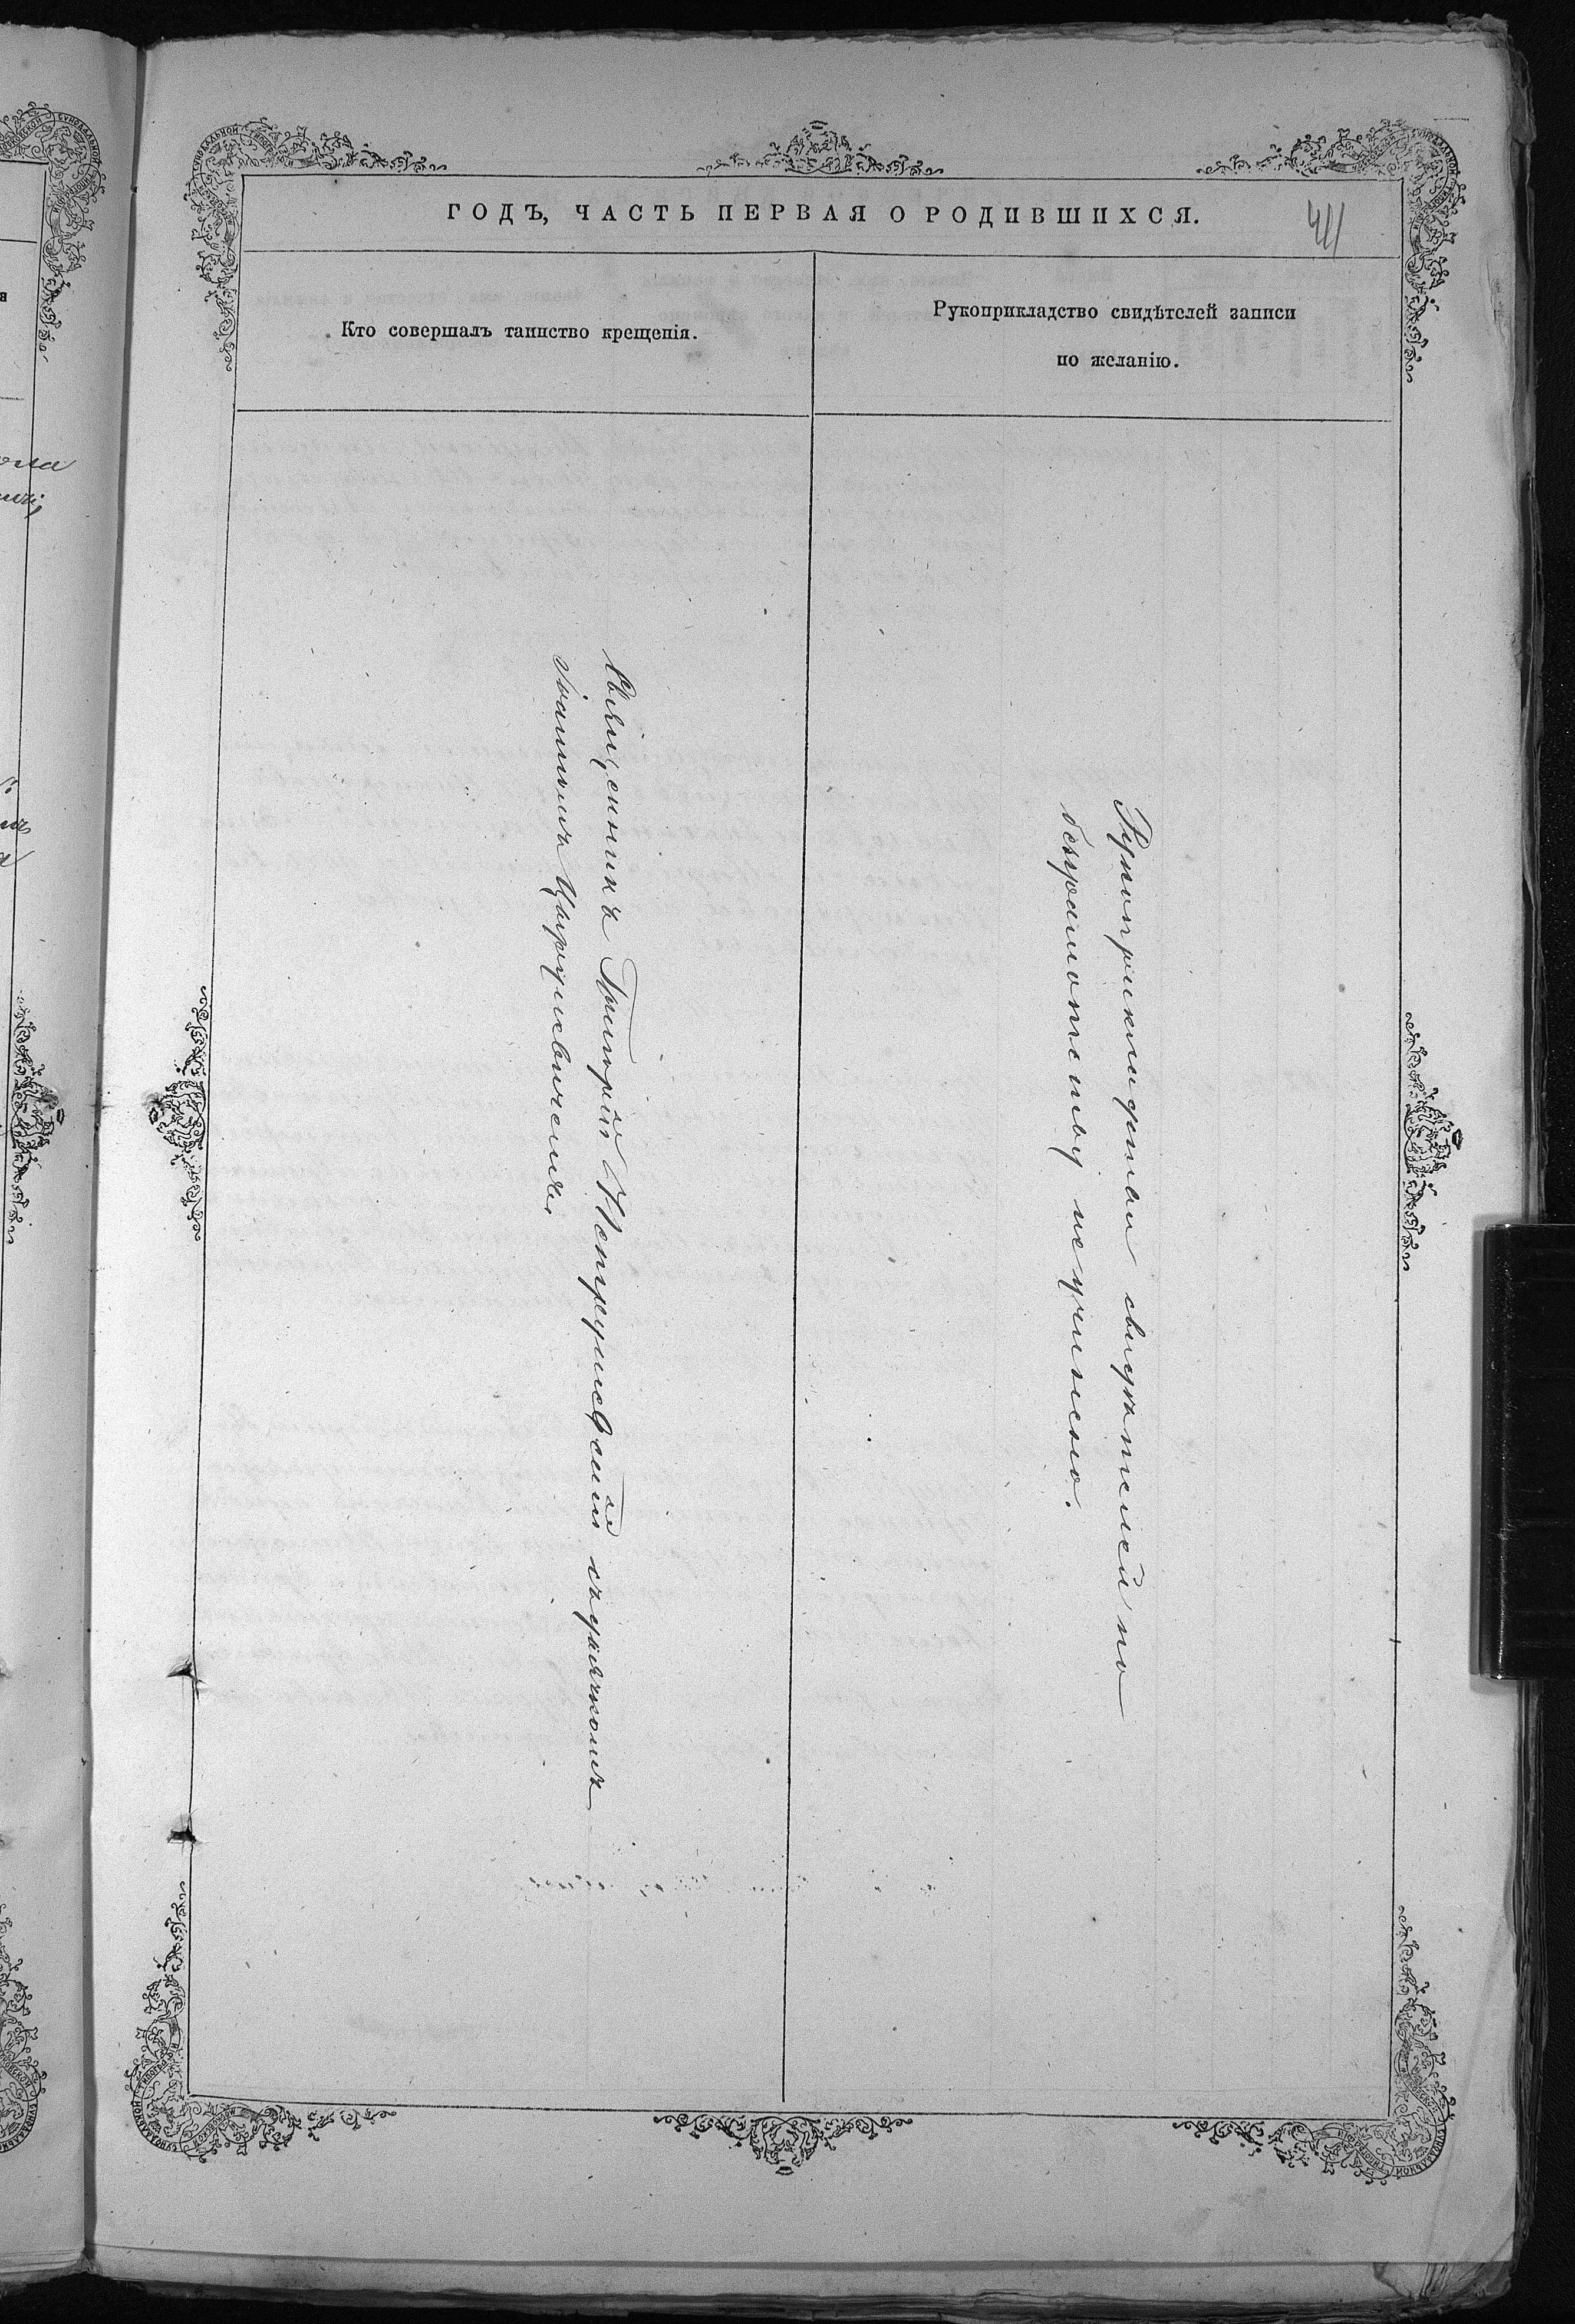 ГОДЪ, ЧАСТЬ ПЕРВАЯ О РОДИВШИХСЯ.
411
Кто совершалъ таинство крещенія.
Рукоприкладство свидѣтелей записи
по желанію.
Священникъ Григорій Петрусевичъ съ дьячкомъ
Іоанномъ
Рукоприкладства свидѣтелей по
безграмотству неучинено.